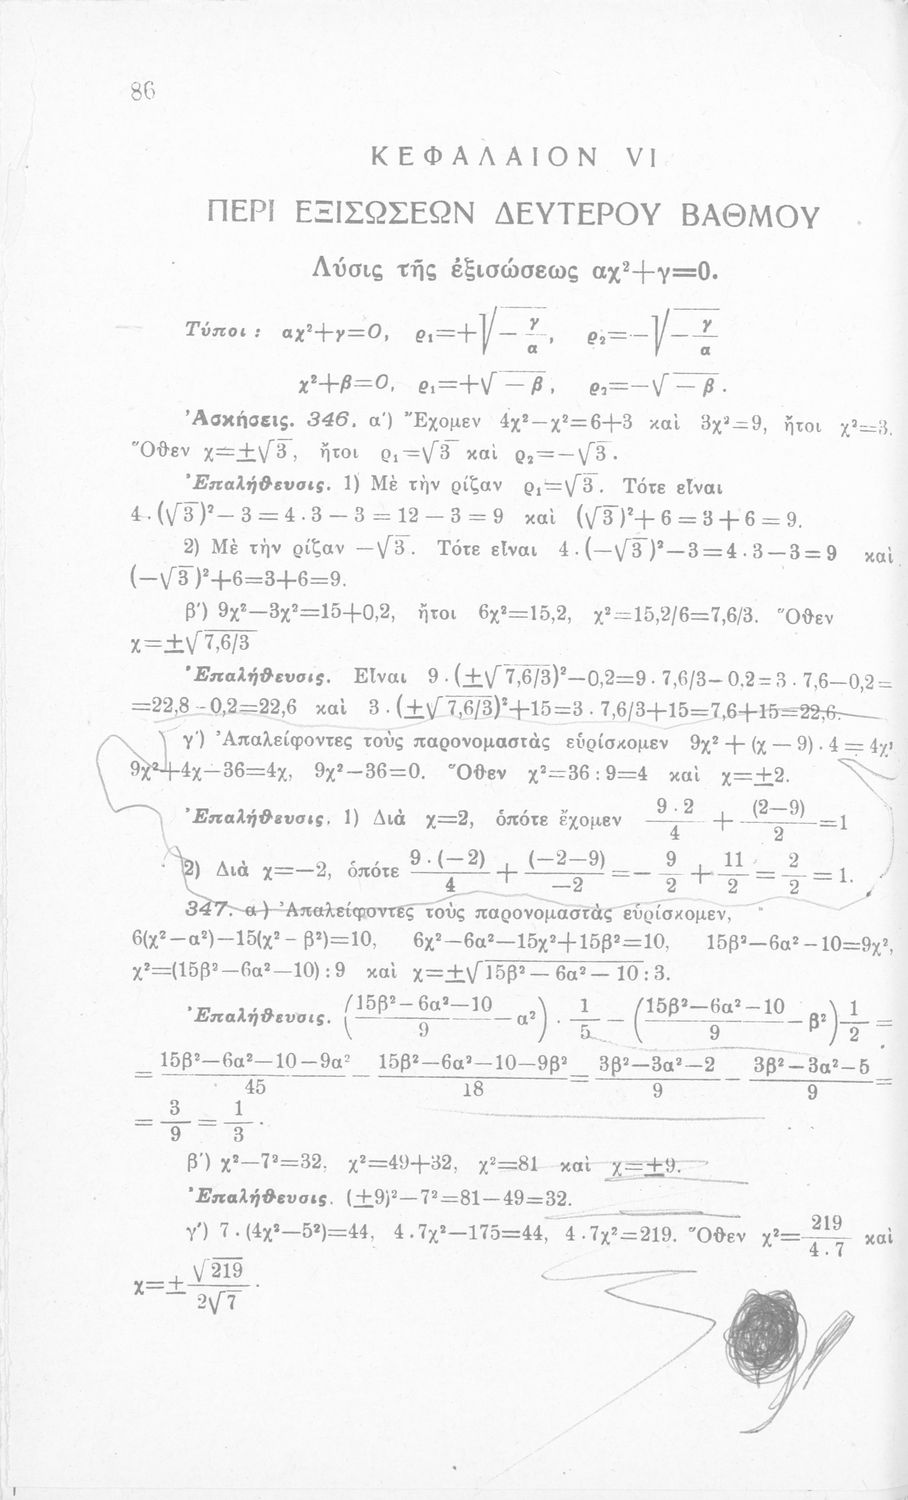 86
ΚΕΦΑΛΑΙΟΝ VI
ΠΕΡΙ ΕΞΙΣΩΣΕΩΝ ΔΕΥΤΕΡΟΥ ΒΑΘΜΟΥ
Λύσις τῆς ἐξισώσεως αχ²+γ=0.
Τύποι : αχ²+γ=0, ϱ₁=+√(−γ/α), ϱ₂=−√(−γ/α)
χ²+β=0, ϱ₁=+√−β, ϱ₂=−√−β.
Ἀσκήσεις. 346. α') Ἔχομεν 4χ²−χ²=6+3 καὶ 3χ²=9, ἤτοι χ²=3.
Ὅθεν χ=±√3, ἤτοι ϱ₁=√3 καὶ ϱ₂=−√3.
Ἐπαλήθευσις. 1) Μὲ τὴν ρίζαν ϱ₁=√3. Τότε εἶναι
4.(√3)²−3=4.3−3=12−3=9 καὶ (√3)²+6=3+6=9.
2) Μὲ τὴν ρίζαν −√3. Τότε εἶναι 4.(−√3)²−3=4.3−3=9 καὶ
(−√3)²+6=3+6=9.
β') 9χ²−3χ²=15+0,2, ἤτοι 6χ²=15,2, χ²=15,2/6=7,6/3. Ὅθεν
χ=±√7,6/3
Ἐπαλήθευσις. Εἶναι 9.(±√7,6/3)²−0,2=9.7,6/3−0,2=3.7,6−0,2=
=22,8−0,2=22,6 καὶ 3.(±√7,6/3)²+15=3.7,6/3+15=7,6+15=22,6.
γ') Ἀπαλείφοντες τοὺς παρονομαστὰς εὑρίσκομεν 9χ²+(χ−9).4=4χ,
9χ²+4χ−36=4χ, 9χ²−36=0. Ὅθεν χ²=36:9=4 καὶ χ=±2.
Ἐπαλήθευσις. 1) Διὰ χ=2, ὁπότε ἔχομεν 9.2/4 + (2−9)/2 =1
2) Διὰ χ=−2, ὁπότε 9.(−2)/4 + (−2−9)/−2 =−9/2+11/2=2/2=1.
347. α') Ἀπαλείφοντες τοὺς παρονομαστὰς εὑρίσκομεν,
6(χ²−α²)−15(χ²−β²)=10, 6χ²−6α²−15χ²+15β²=10, 15β²−6α²−10=9χ²,
χ²=(15β²−6α²−10):9 καὶ χ=±√15β²−6α²−10:3.
Ἐπαλήθευσις. ((15β²−6α²−10)/9 −α²).1/5 − ((15β²−6α²−10)/9 −β²)1/2 =
= (15β²−6α²−10−9α²)/45 − (15β²−6α²−10−9β²)/18 = (3β²−3α²−2)/9 − (3β²−3α²−5)/9 =
= 3/9 = 1/3.
β') χ²−7²=32, χ²=49+32, χ²=81 καὶ χ=±9.
Ἐπαλήθευσις. (±9)²−7²=81−49=32.
γ') 7.(4χ²−5²)=44, 4.7χ²−175=44, 4.7χ²=219. Ὅθεν χ²=219/4.7 καὶ
χ=±√219/2√7.